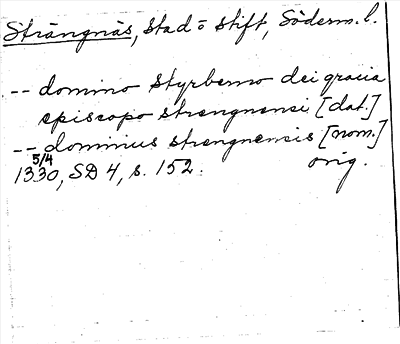 Strängnäs, Stad o Stift, Söderm. l.
-- domino Styrberno dei gracia
episcopo strengnensi [dat.]
-- dominius strengnensis [nom.]
5/4 orig.
1330, SD 4, s. 152.